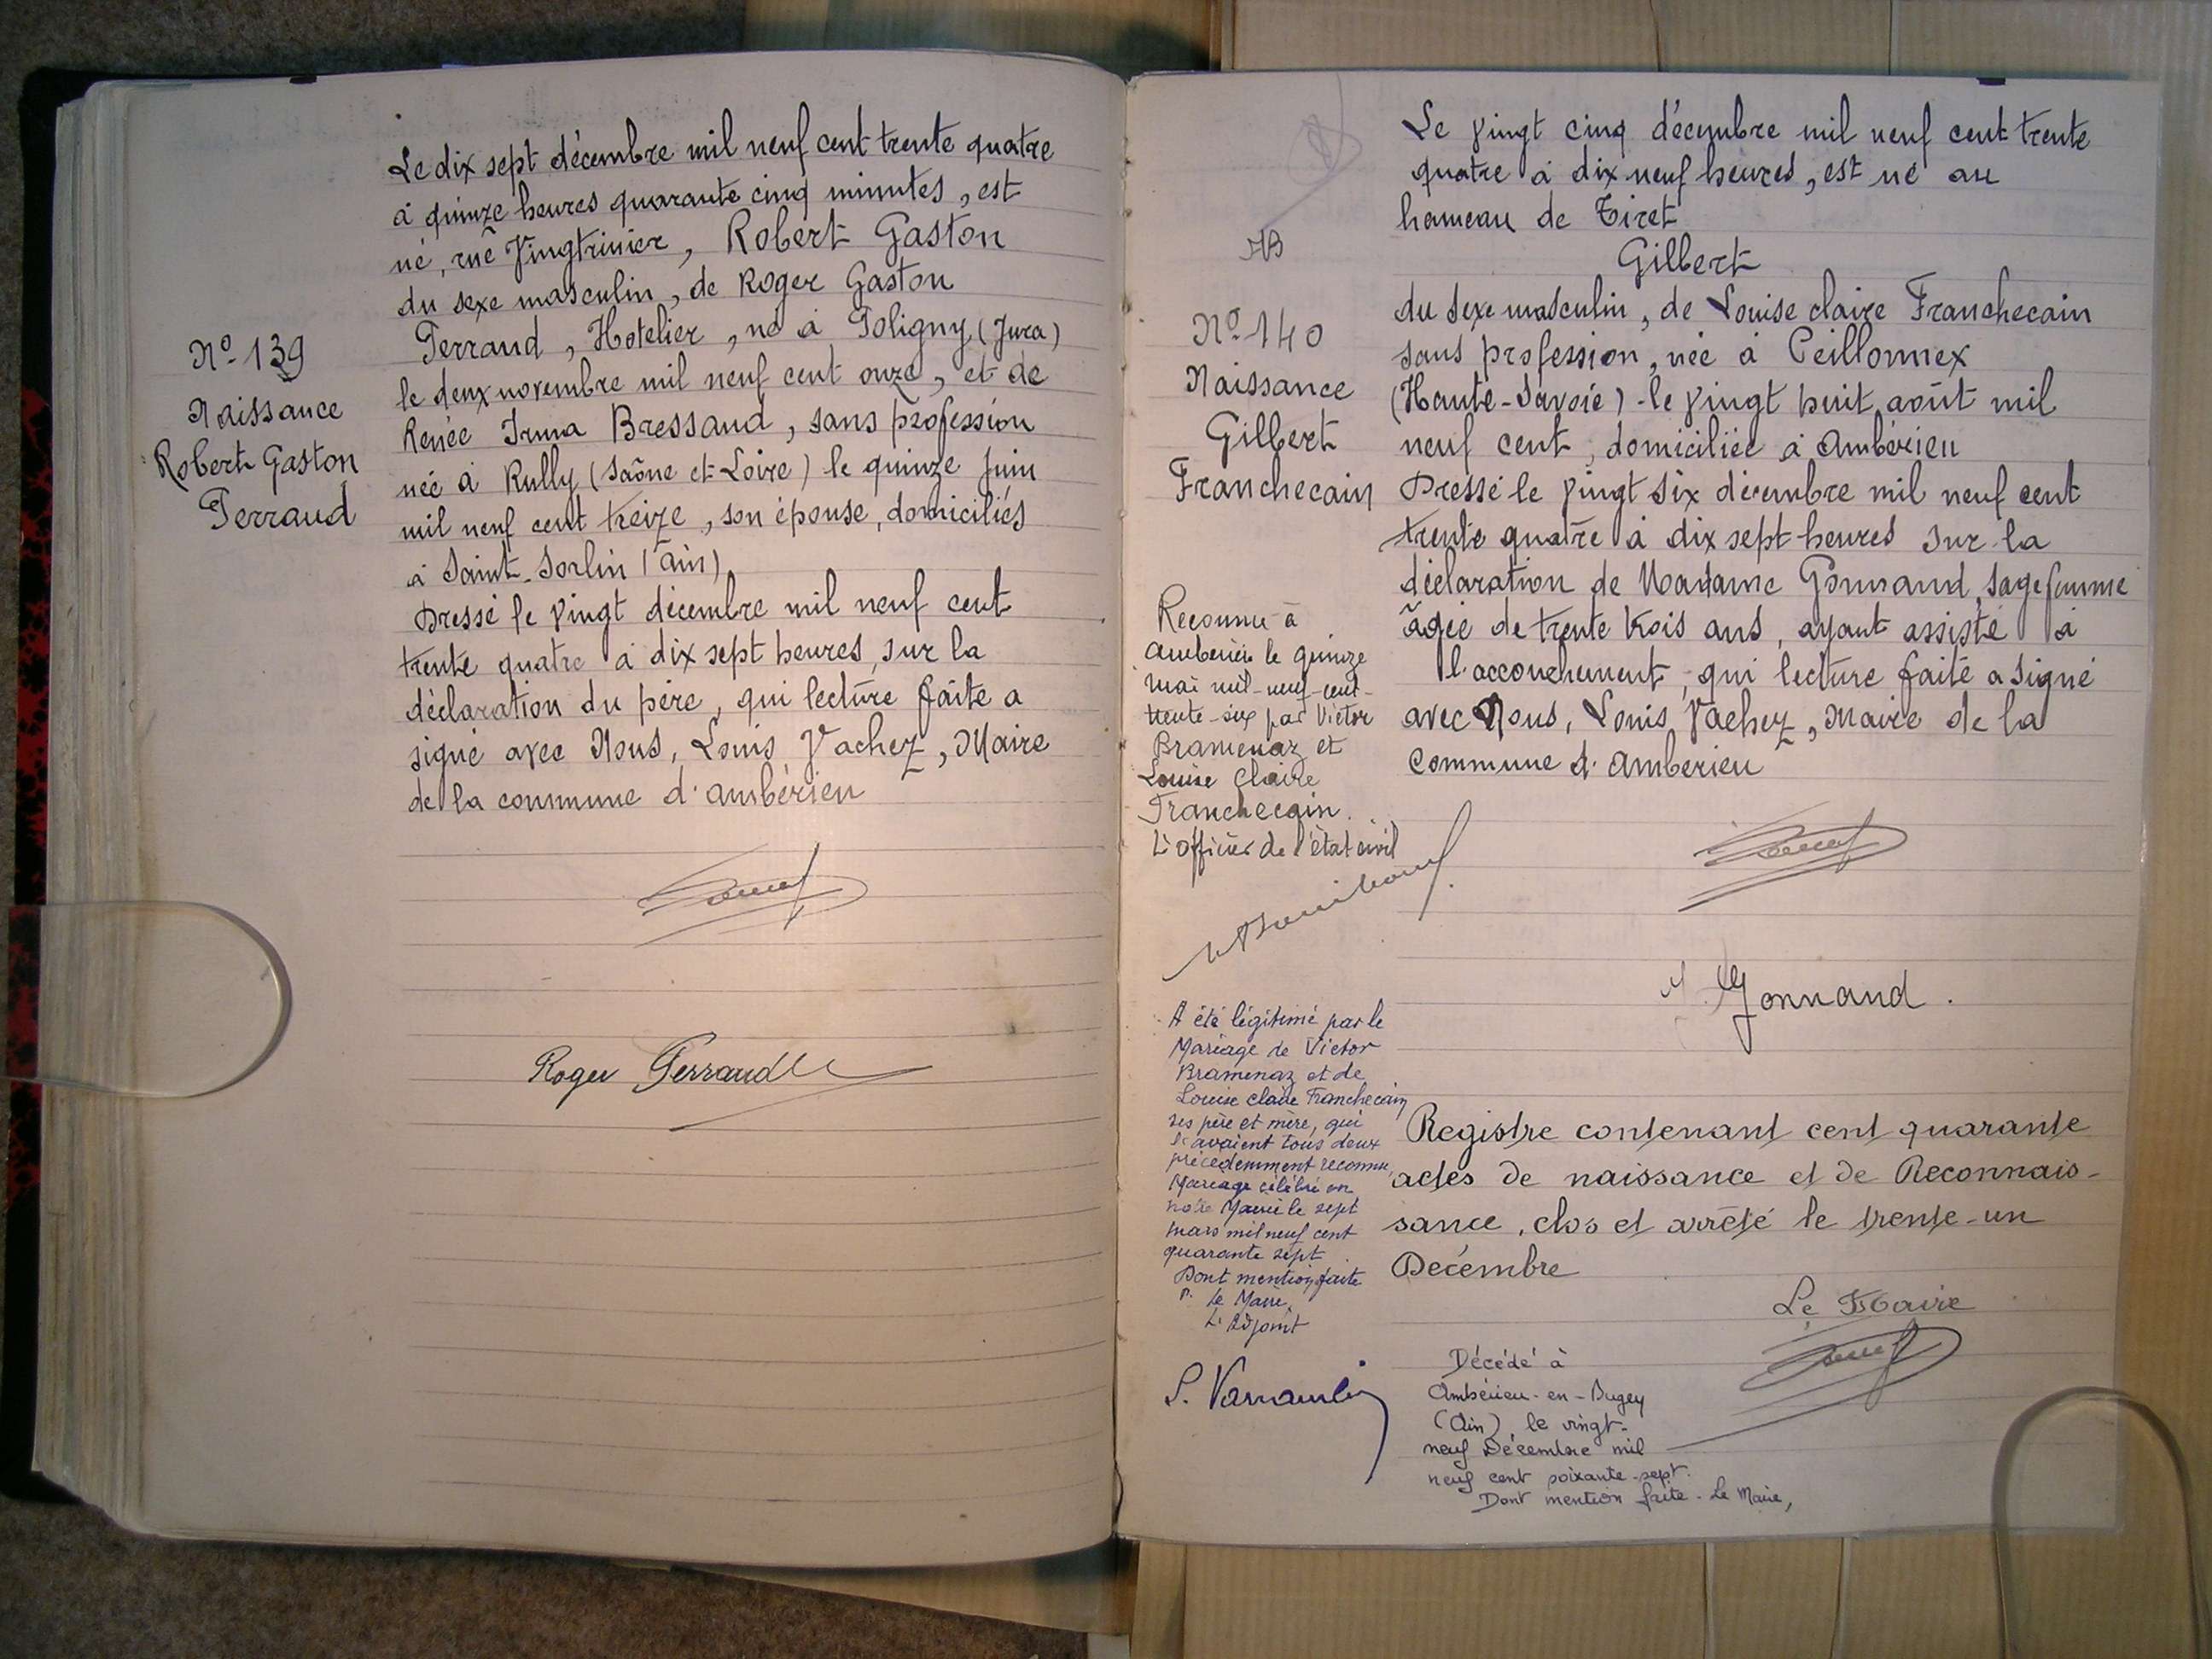 Le dix sept décembre mil neuf cent trente quatre
à quinze heures quarante cinq minutes, est
né, rue Vingtrinier, Robert Gaston
du sexe masculin, de Roger Gaston
Perraud, Hotelier, né à Poligny (Jura)
le deux novembre mil neuf cent onze, et de
Renée Irma Bressand, sans profession
née à Rully (Saône et Loire) le quinze Juin
mil neuf cent treize, son épouse, domiciliés
à Saint-Sorlin (Ain)
Dressé le vingt décembre mil neuf cent
trente quatre à dix sept heures, sur la
déclaration du père, qui lecture faite a
signé avec Nous, Louis Vachez, Maire
de la commune d'Ambérieu
Nº 139
Naissance
Robert Gaston
Perraud
Roger Perraud
Le vingt cinq décembre mil neuf cent trente
quatre à dix neuf heures, est né au
hameau de Tiret
Gilbert
du sexe masculin, de Louise claire Franchecain
sans profession, née à Peillonnex
(Haute-Savoie) le vingt huit août mil
neuf cent, domiciliée à Ambérieu
Dressé le vingt six décembre mil neuf cent
trente quatre à dix sept heures sur la
déclaration de Madame Gonnand, sage femme
âgée de trente trois ans, ayant assisté à
l'accouchement, qui lecture faite a signé
avec Nous, Louis Vachez, Maire de la
Commune d'Ambérieu
Nº 140
Naissance
Gilbert
Franchecain
Reconnu à
Ambérieu le quinze
mai mil-neuf-cent-
trente-six par Victor
Bramenaz et
Louise Claire
Franchecain.
L'officier de l'état civil
Gonnand.
A été légitimé par le
Mariage de Victor
Bramenaz et de
Louise claire Franchecain
ses père et mère, qui
l'avaient tous deux
précédemment reconnu,
Mariage célébré en
notre Mairie le sept
mars mil neuf cent
quarante sept
Dont mention faite
P. Le Maire,
L'Adjoint
Registre contenant cent quarante
actes de naissance et de Reconnais-
sance, clos et arrêté le trente-un
Décembre
Le Maire
Décédé à
Ambérieu-en-Bugey
(Ain), le vingt-
neuf Décembre mil
neuf cent soixante-sept.
Dont mention faite - Le Maire,